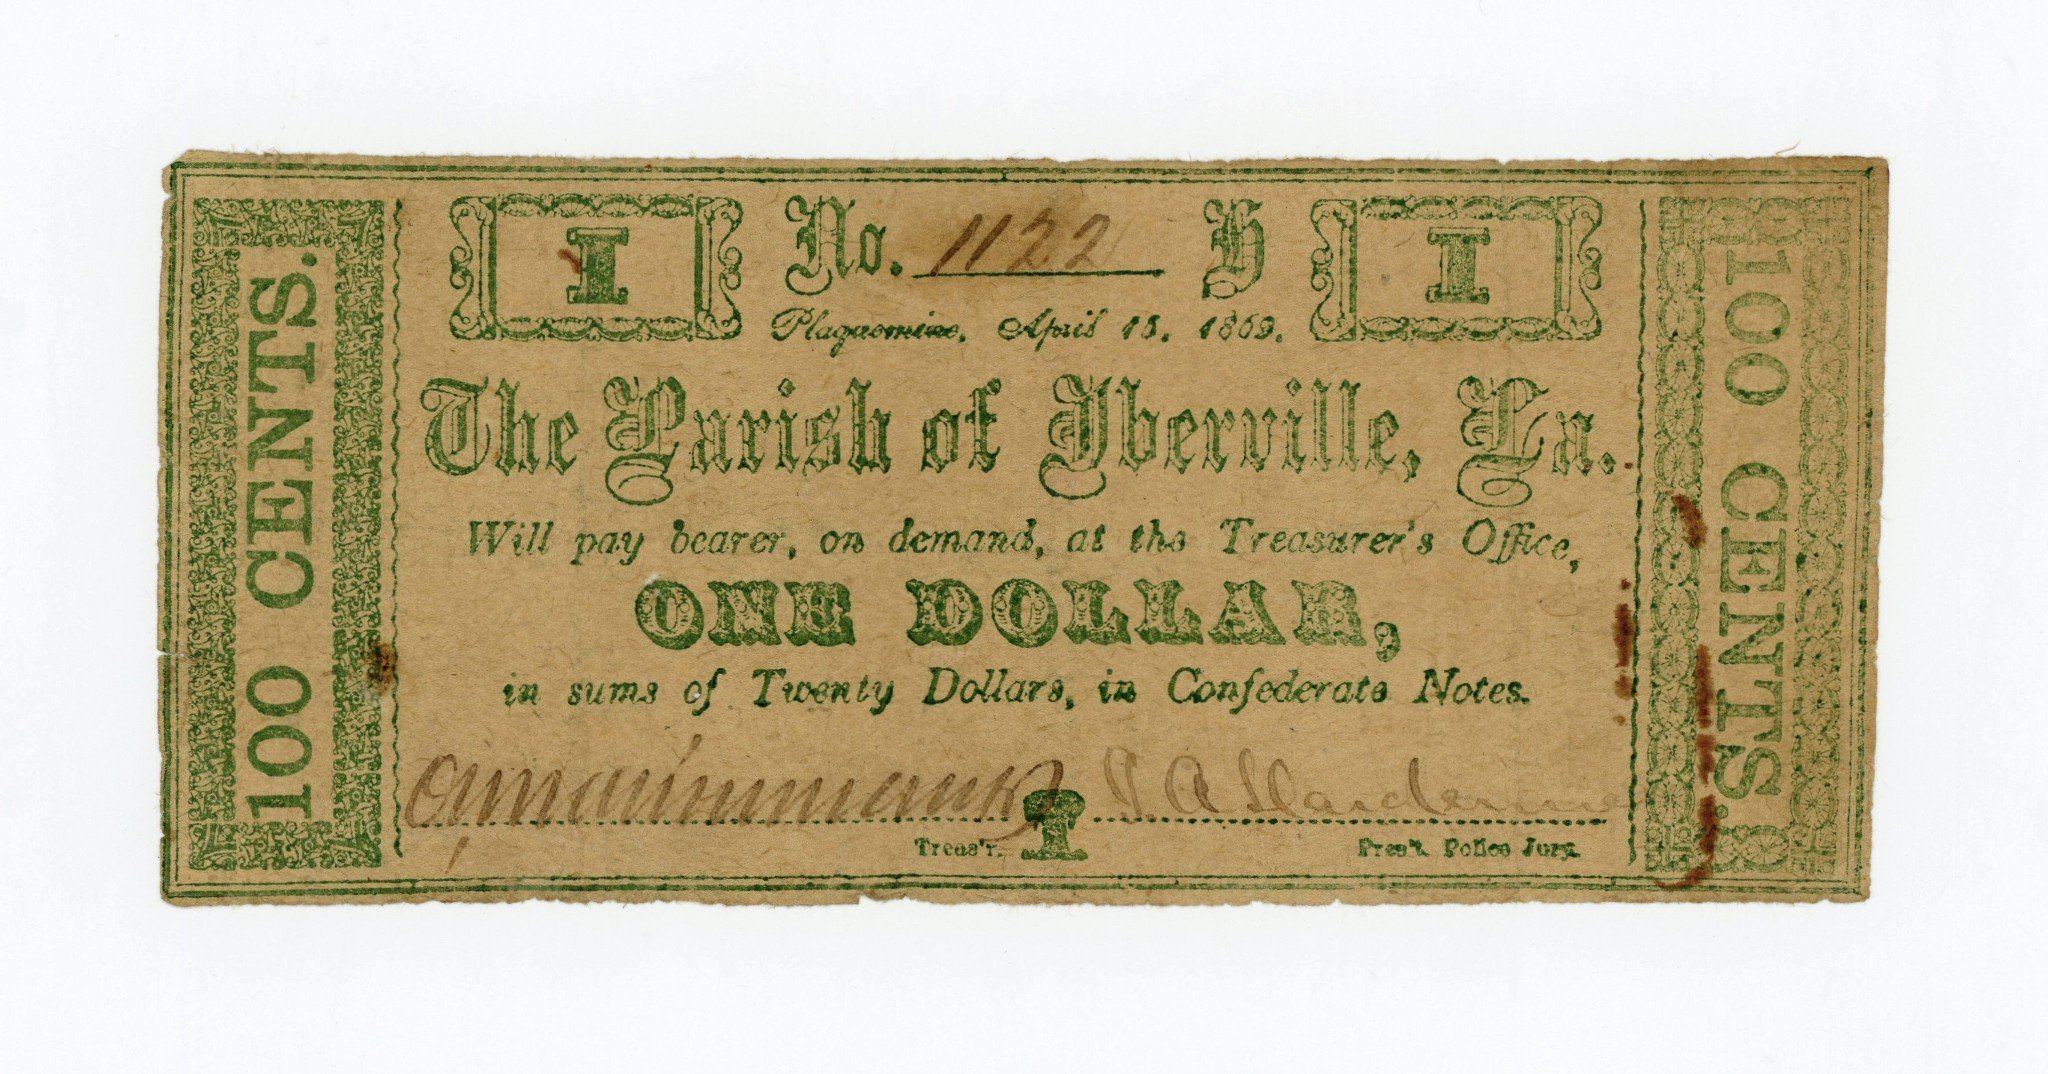 100 CENTS.
1
No. 1122 H
1
Plaquemine, April 15, 1862.
The Parish of Iberville, La.
Will pay bearer, on demand, at the Treasurer's Office,
ONE DOLLAR,
in sums of Twenty Dollars, in Confederate Notes.
1
Treas'r.
Pres't. Police Jury.
100 CENTS.